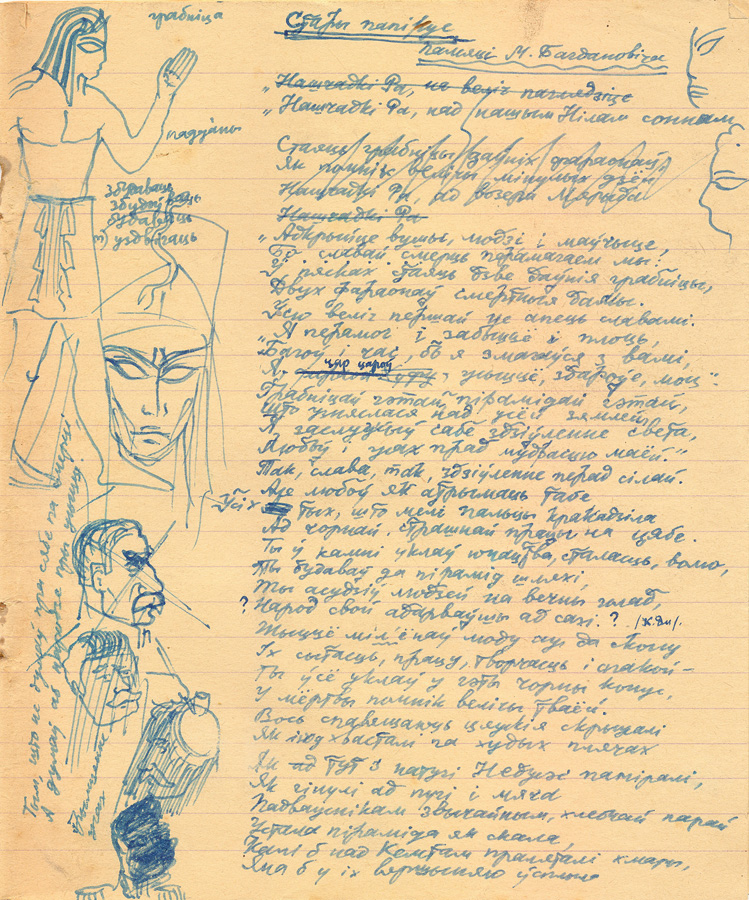 грабніца
Стары папірус
Памяці М. Багдановіча
"Нашчадкі Ра, на веліч паглядзіце
"Нашчадкі Ра, над нашым Нілам сонным
Стаяць грабніцы даўніх фараонаў,
Як помнік велічы мінулых дзён
Нашчадкі Ра, ад возера Мярыда
Нашчадкі Ра
"Адкрыйце вушы, людзі і маўчыце,
Бо славай смерць перамагаем мы:
У пясках стаяць дзве даўнія грабніцы,
Двух фараонаў смертныя дамы.
Усю веліч першай не апець славамі.
"Я перамог і забыццё і плоць,
Багоў і час, бо я змагаўся з вамі,
Я, цар цароў, знішчэ, збярожа, моц".
Грабніцай гэтай, пірамідай гэтай,
Што ўзнялася над усёй зямлёй
Я заслужыў сабе здзіўленне света,
Любоў і жах прад мудрасцю маёй."
Так, слава, так, здзіўленне перад сілай.
Але любоў як атрымаць табе
Усіх тых, што мелі пальцы кракадзіла
Ад чорнай, страшнай працы на цябе.
Ты ў камні уклаў юнацтва, сталасць, волю,
Ты будаваў да пірамід шляхі,
Ты асудзіў людзей на вечны голад,
? Народ свой адарваўшы ад сахі. ?
Жыццё мільёнаў люду аж да скону
Іх сытасць, працу, творчасць і спакой –
Ты ўсё уклаў у гэты чорны конус,
У мёртвы помнік велічы тваёй.
Вось спавяшчаюць цяжкія скрыжалі
Як іход хвасталі па худых плячах
Як ад тут з натугі Небужі паміралі,
Як гінулі ад пугі і мяча
Падваўснікам звычайным, хлебнай парай
Устала піраміда як скала,
Калі б над Кемтам праляталі хмары,
Яна б у іх вяршыняю ўсплыла
падданы
збудаваць
збудаваць
будаваць
узвігаць
Тым, што не думаў пра сябе па смерці
А думаў аб народзе пры жыцці.